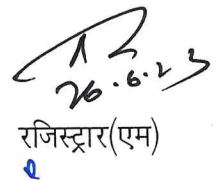 26.6.23
रजिस्ट्रार(एम)